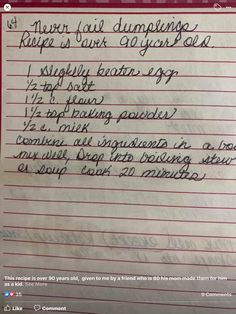 Never fail dumplings
Recipe is over 90 years old.
1 slightly beaten egg
1/2 tsp salt
1 1/2 c. flour
1 1/2 tsp baking powder
1/2 c. milk
Combine all ingredients in a
mix well, Drop into boiling stew
or soup cook 20 minutes
This recipe is over 90 years old, given to me by a friend who is 80 his mom made them for him
as a kid. See More
35
9 Comments
Like Comment